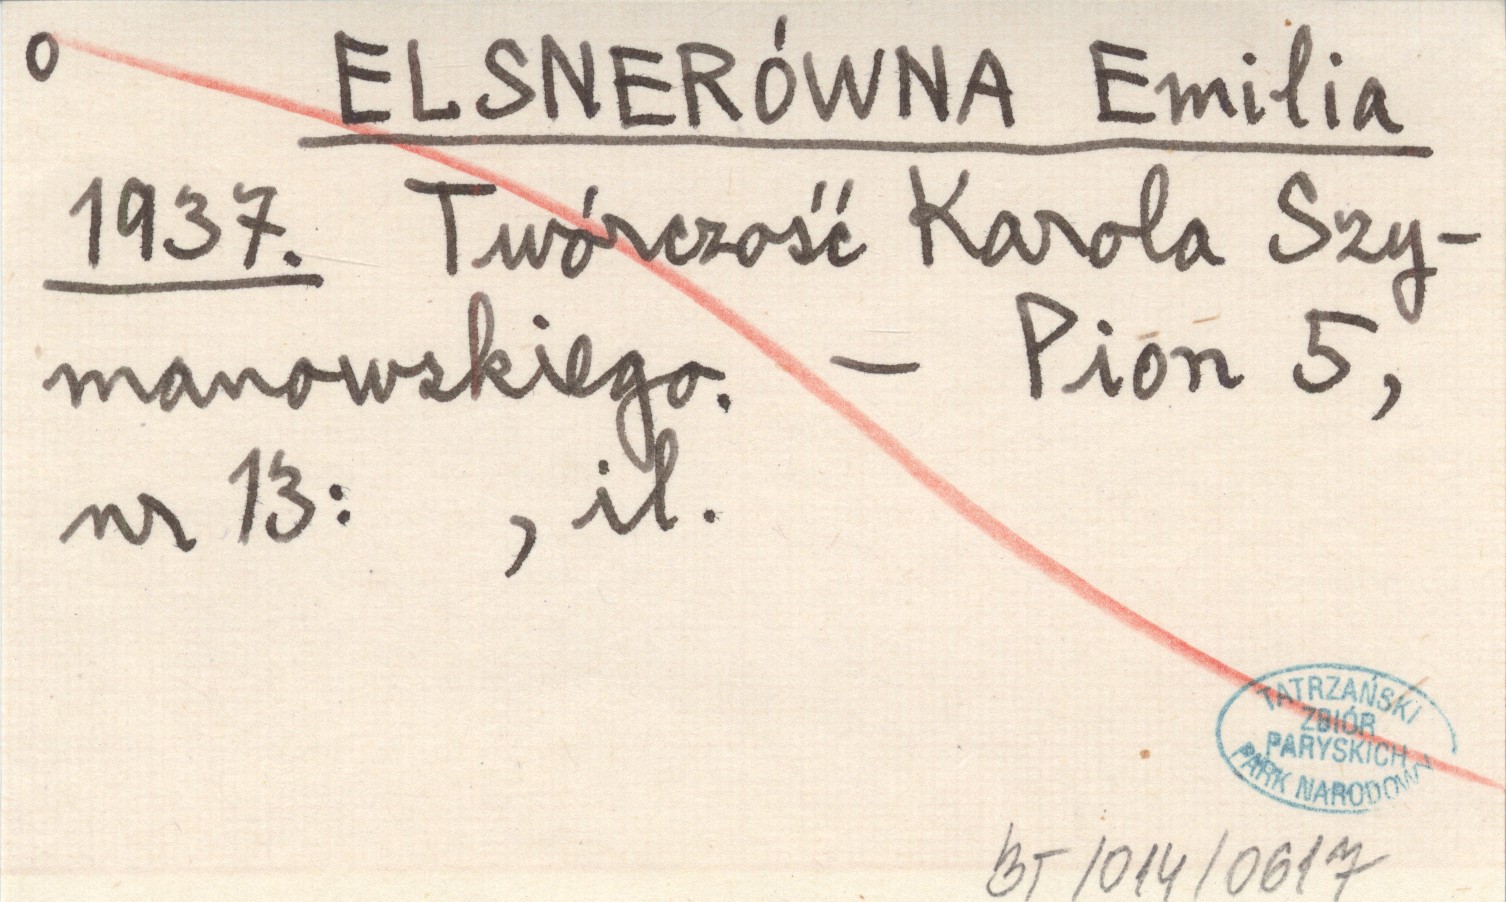 o ELSNERÓWNA Emilia
1937. Twórczość Karola Szy-
manowskiego. – Pion 5,
nr 13: , il.
TATRZAŃSKI
ZBIÓR
PARYSKICH
PARK NARODOWY
BT/014/0617